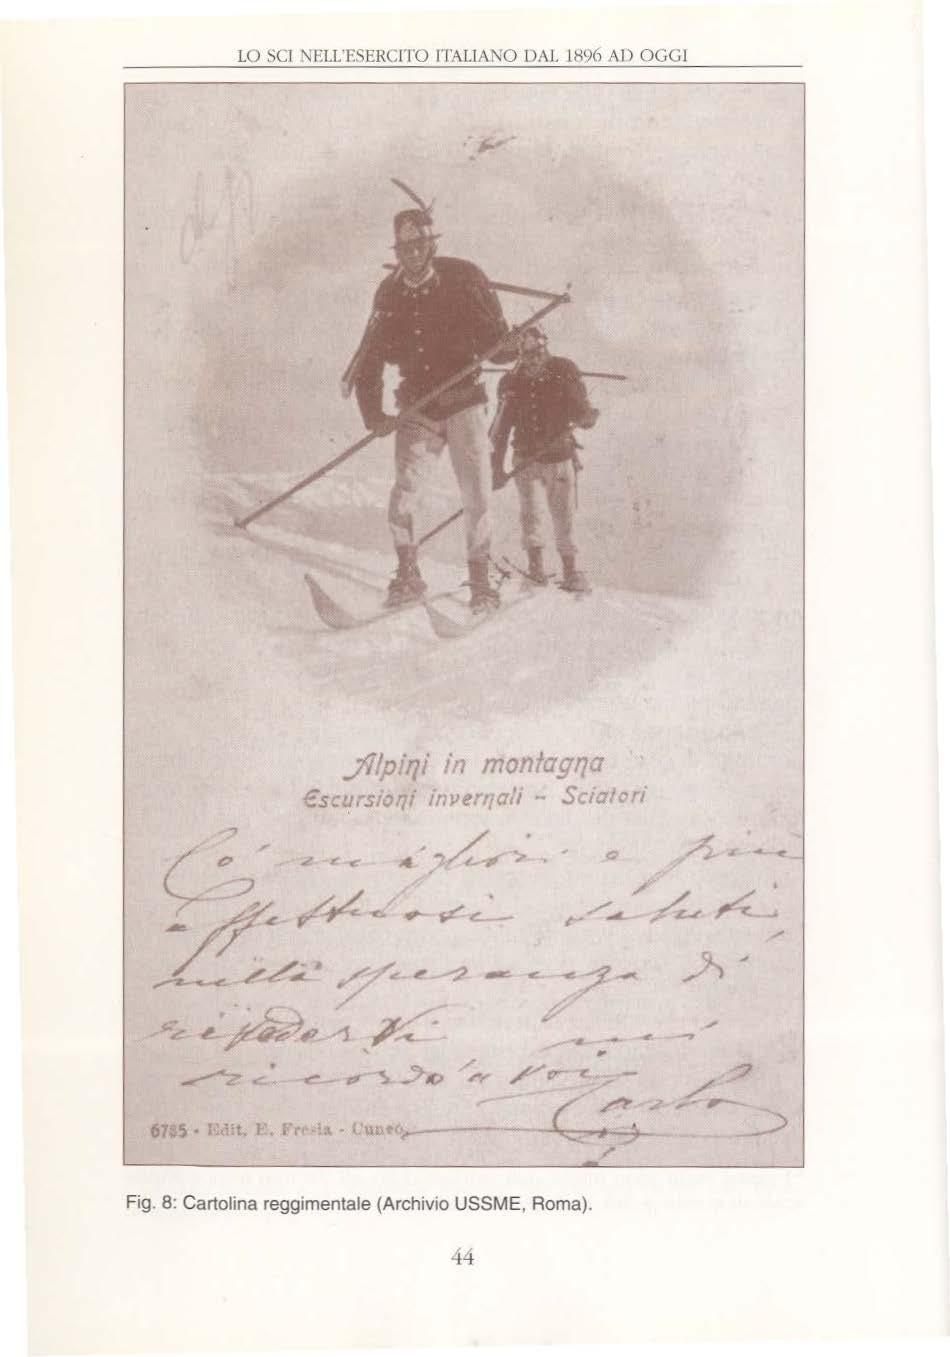 LO SCI NELL'ESERCITO ITALIANO DAL 1896 AD OGGI
Alpini in montagna
Escursioni invernali - Sciatori
Co' migliori e più
affettuosi saluti
nella speranza di
rivedervi mi
ricordo a voi
Carlo
6785 - Edit. E. Fresia - Cuneo
Fig. 8: Cartolina reggimentale (Archivio USSME, Roma).
44